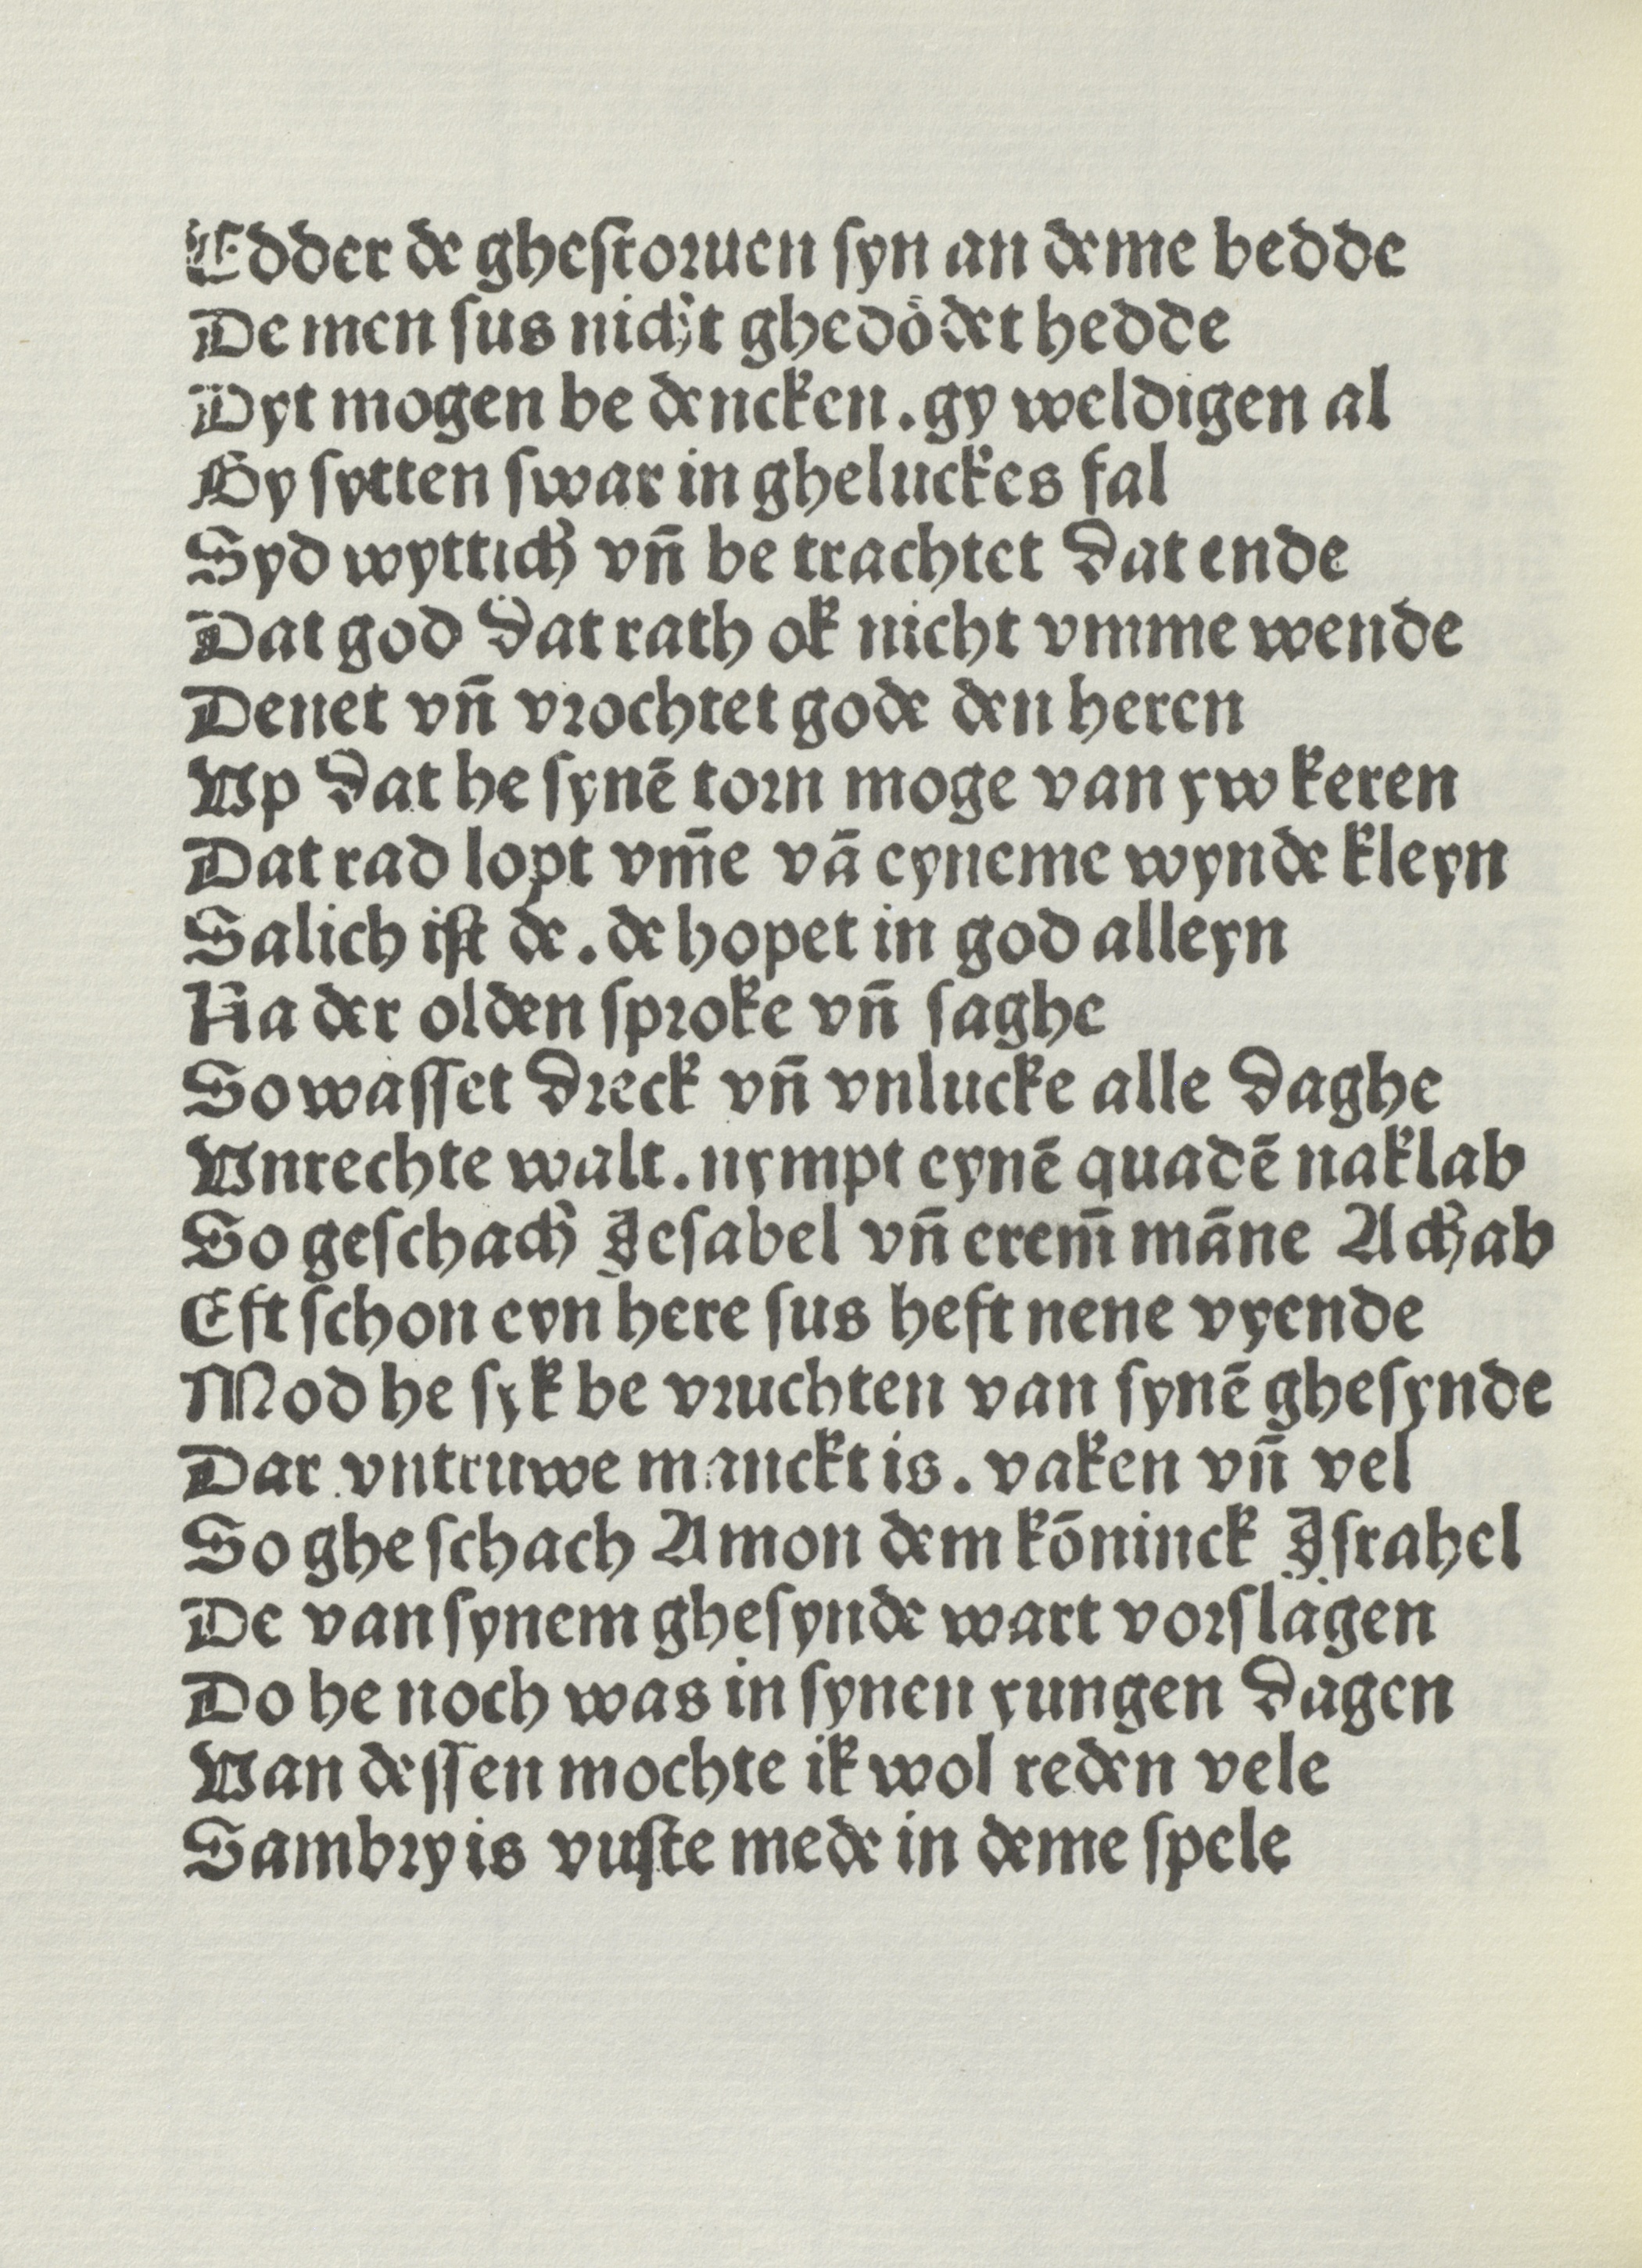 Edder de ghestoruen syn an deme bedde
De men sus nicht ghedödet hedde
Dyt mogen be dencken. gy weldigen al
Gy sytten swar in gheluckes fal
Syd wyttich vn̄ be trachtet dat ende
Dat god dat rath ok nicht vmme wende
Denet vn̄ vrochtet gode den heren
Vp dat he synē torn moge van yw keren
Dat rad lopt vm̄e vā eyneme wynde kleyn
Salich ist de. de hopet in god alleyn
Na der olden sproke vn̄ saghe
So wasset dreck vn̄ vnlucke alle daghe
Vnrechte walt. nympt eynē quadē naklab
So geschach Jesabel vn̄ erem̄ māne Achab
Eft schon eyn here sus heft nene vyende
Mod he syk be vruchten van synē ghesynde
Dar vntruwe manckt is. vaken vn̄ vel
So ghe schach Amon dem kōninck Israhel
De van synem ghesynde wart vorslagen
Do he noch was in synen yungen dagen
Van dessen mochte ik wol reden vele
Sambry is vuste mede in deme spele